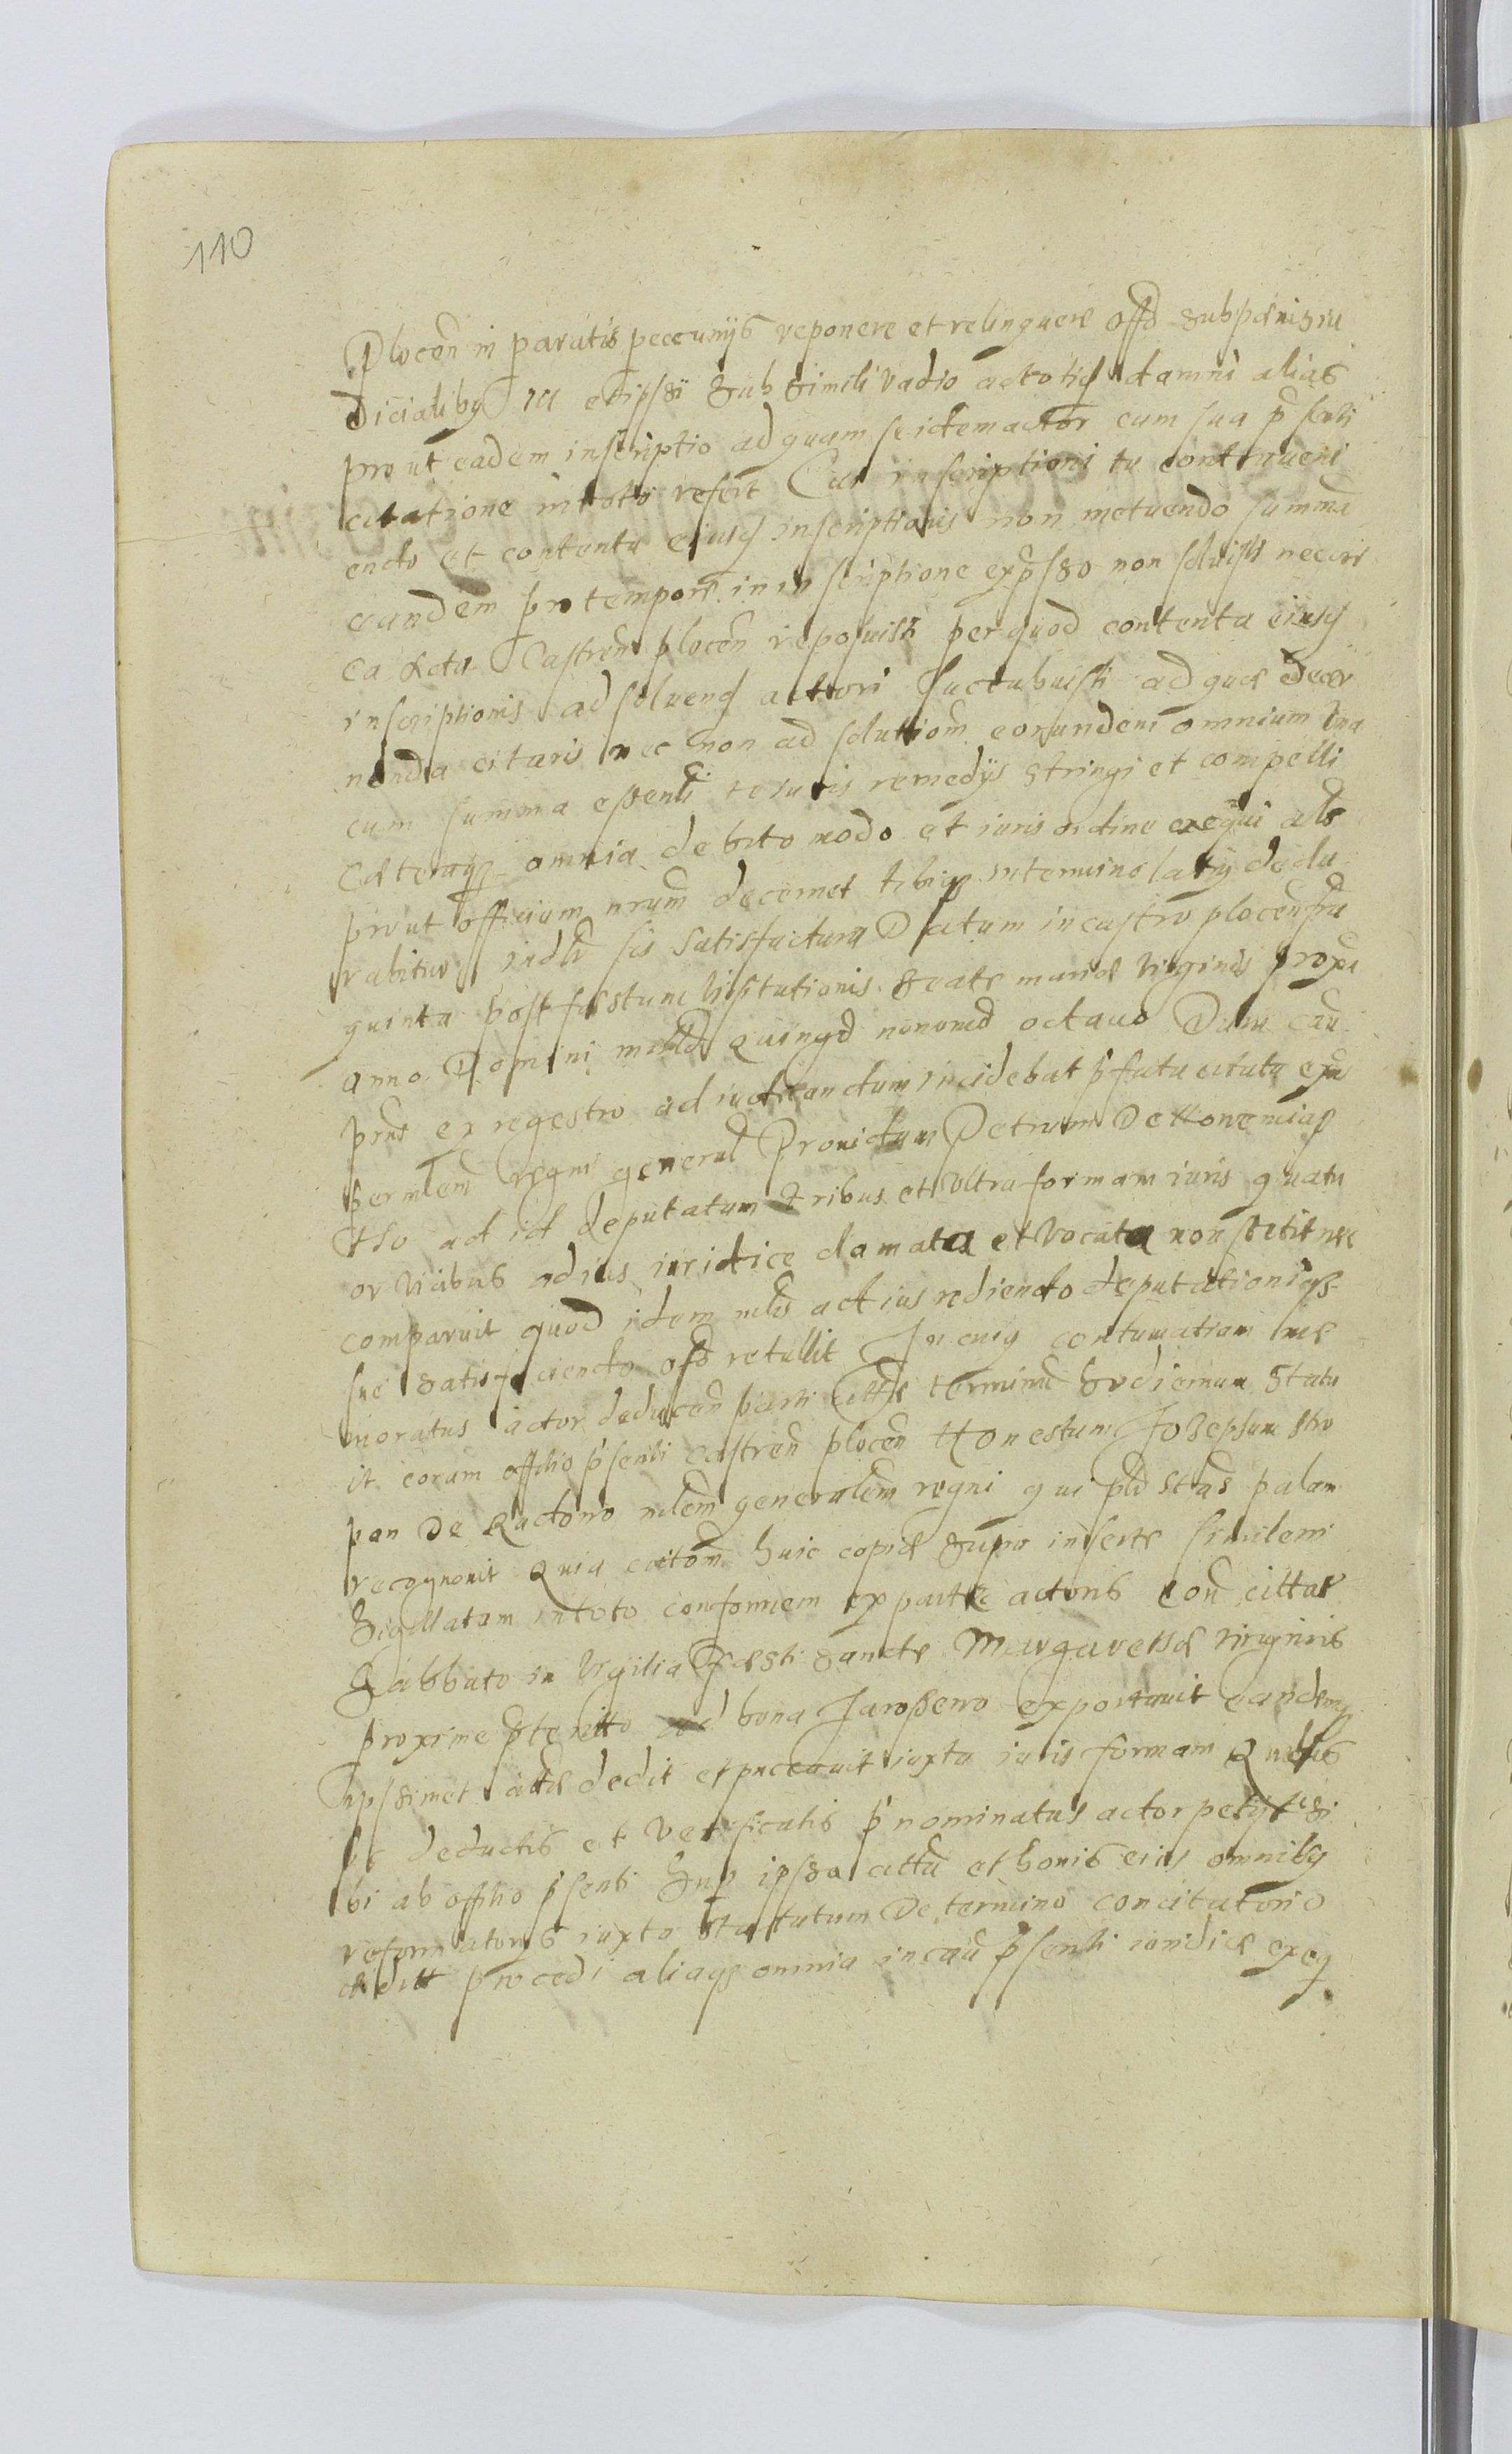 110
Plocen in paratis peccunijs reponere et relinquere offd sub pænis iu
dicialibq et ipssi sub simili vadio ac totiq damni alias
prout eadem inscriptio ad quam se idem actor cum sua pñti
citatione in toto refert Cui inscriptioni tu contraueni
endo et contenta eiusq inscriptionis non metuendo summã
eandem pro tempore in inscriptione expsso non soluisti nec cir
ca Acta Castren plocen reposuisti per quod contenta eiusq
inscriptionis ad soluend actori succubuisti ad quæ decer
nenda citaris nec non ad solutiom eorundem omnium vna
cum summa essenli iuris remedijs stringi et compelli
Cæteraqz omnia debito modo et iuris ordine exequi als
prout officium nrum decernet tibiqz in termino latiq decla
rabitur iudr sis satisfactura Datum in castro plocen fra
quinta post festum visitationis beate mariæ virginis proxa
anno Domini milld quingd nonomd octauo Dum cau
pñs ex regestro ad iudicandum incidebat pfata citata
per mlem regni general Prouidum Petrum De
ad id deputatum tribus et vltra formam iuris quatu
or vicibus ad ius iuridice clamata et vocata non stetit nec
comparuit quod idem mlis ad ius rediendo deputationiqz
sue satisfaciendo offd retullit In cuiq contumatiam me
moratus actor deducen parti cittæ terminũ hodiernum statu
it coram offtio pñsenti castren plocen Honestum Josephum Stro
pan De Ractowo mlem generalem regni qui pld stãs palam
recognouit Quia citom huic copiæ supio insertæ similem
Sigillatam in toto conformem ex parte actoris con cittæ
Sabbato in vigilia festi sanctæ Margaretæ virginis
proxime pterito ad bona Jaroszewo exportauit eandemq
ipsimet cittæ dedit et pnceauit iuxta iuris formam Quibus
sic deductis et verificatis pnominatus actor petijt si
bi ab offtio pñsenti sup ipssa citta et bonis eius omnibq
reformatoris iuxta Statutum De termino concitatorio
editt procedi aliaqz omnia in cau pñsenti iuridicæ exeq